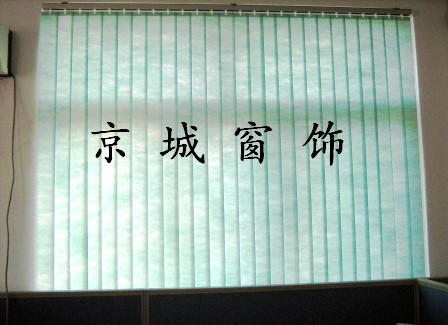 京城窗饰